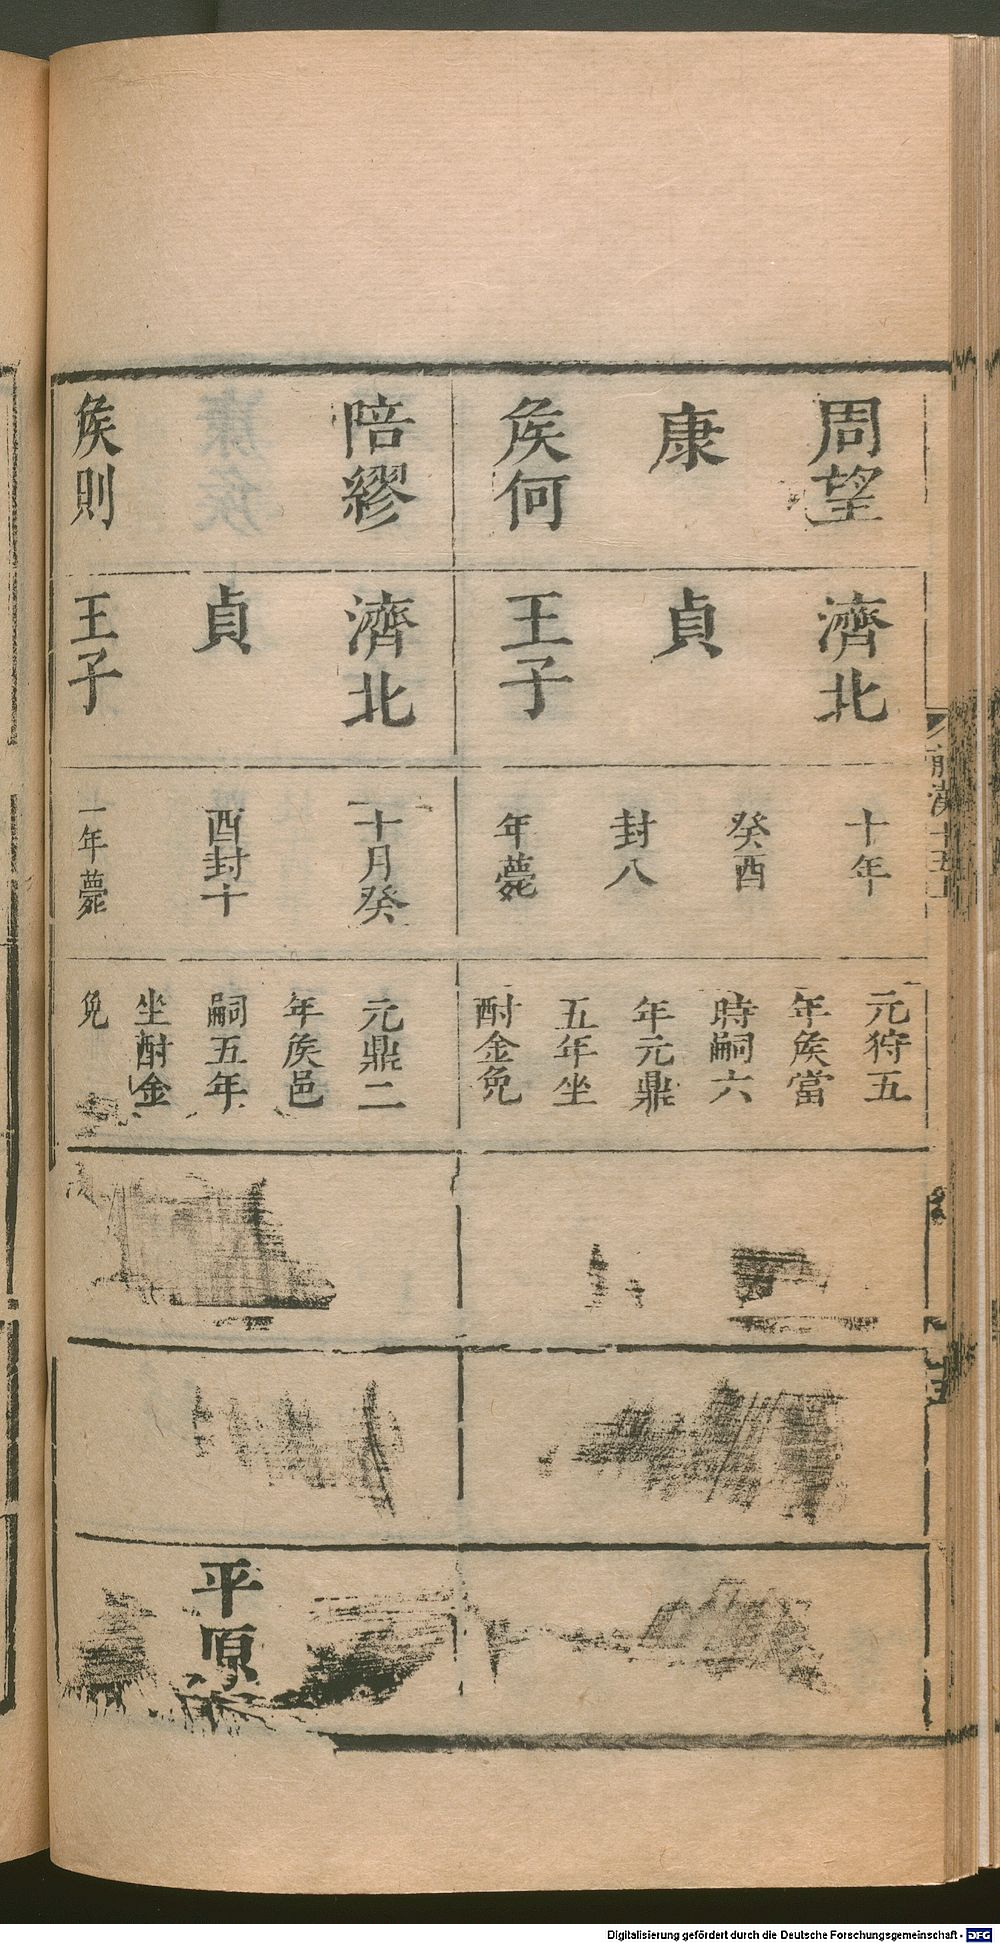 周望
康
矦何
濟北
貞
王子
十年
癸酉
封八
年薨
元狩五
年矦當
時嗣六
年元鼎
五年坐
酎金免
陪繆
矦則
濟北
貞
王子
十月癸
酉封十
一年薨
元鼎二
年矦邑
嗣五年
坐酎金
免
平原
前漢十五上
Digitalisierung gefördert durch die Deutsche Forschungsgemeinschaft - DFG